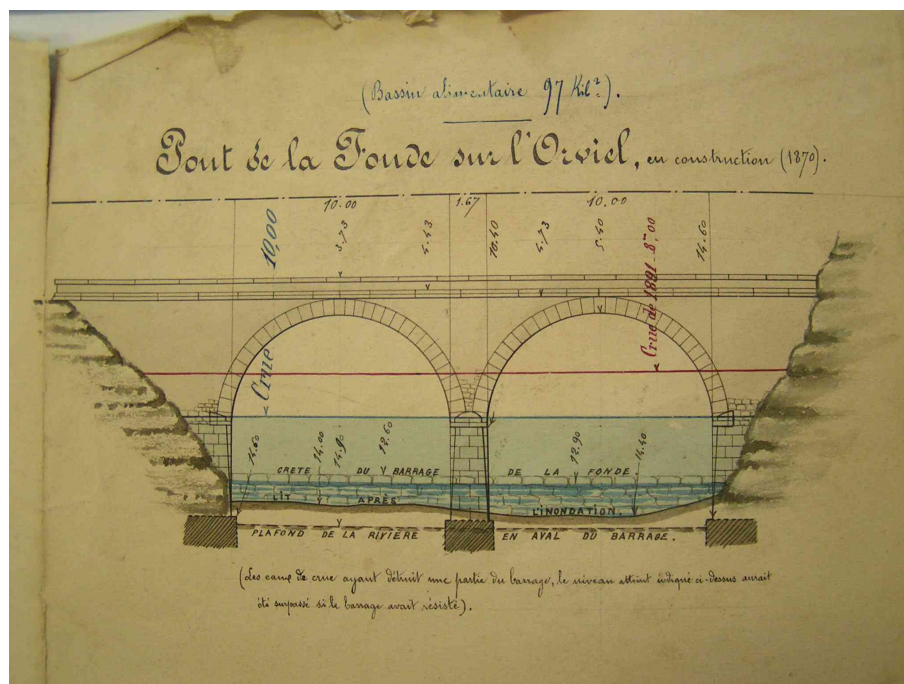 (Bassin alimentaire 97 Kil².).
Pont de la Fonde sur l'Orviel, en construction (1870).
10.00 1.67 10.00
10,00 3.73 4.43 10.40 4.73 5.40 Crue de 1891 8m,00 14.60
Crue
14.60 14.00 14.90 12.60 12.90 14.40
CRETE DU BARRAGE DE LA FONDE
LIT APRÈS L'INONDATION.
PLAFOND DE LA RIVIERE EN AVAL DU BARRAGE.
(Les eaux de crue ayant détruit une partie du barrage, le niveau atteint indiqué ci-dessus aurait
été surpassé si le barrage avait résisté).